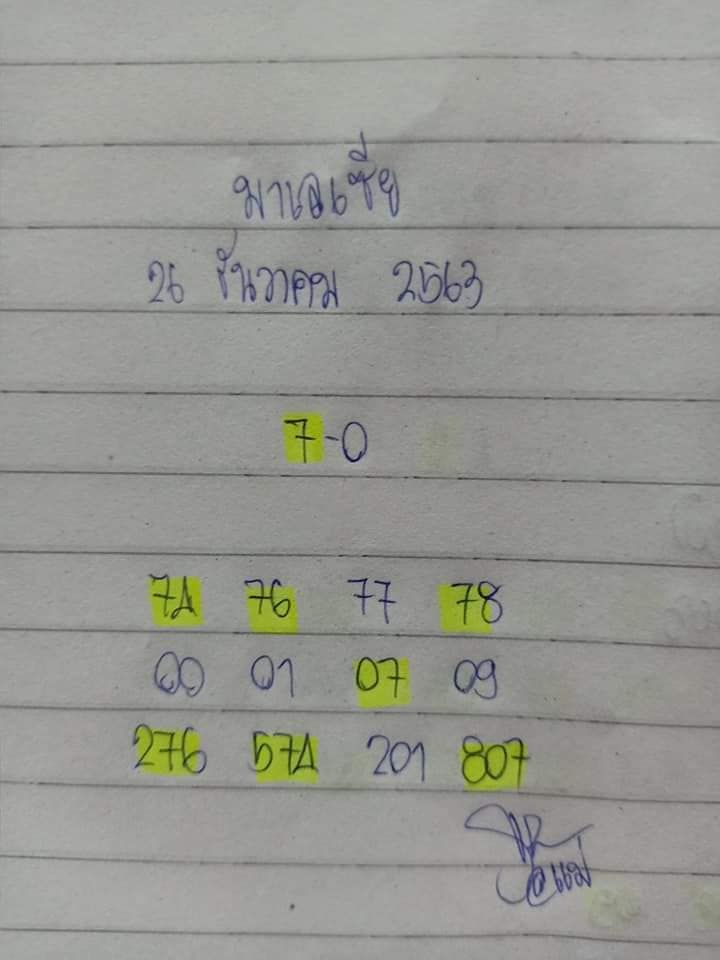 มาเลเซีย
26 ธันวาคม 2563
7-0
74 76 77 78
00 01 07 09
276 574 201 807